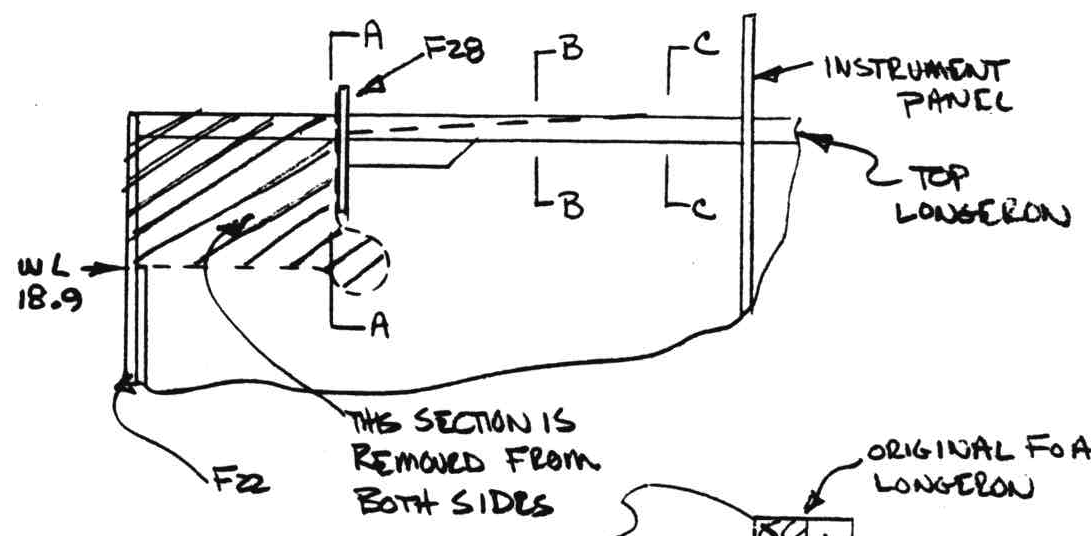 A
F28
B
C
INSTRUMENT
PANEL
TOP
LONGERON
B
C
WL
18.9
A
THIS SECTION IS
REMOVED FROM
BOTH SIDES
F22
ORIGINAL FOA
LONGERON